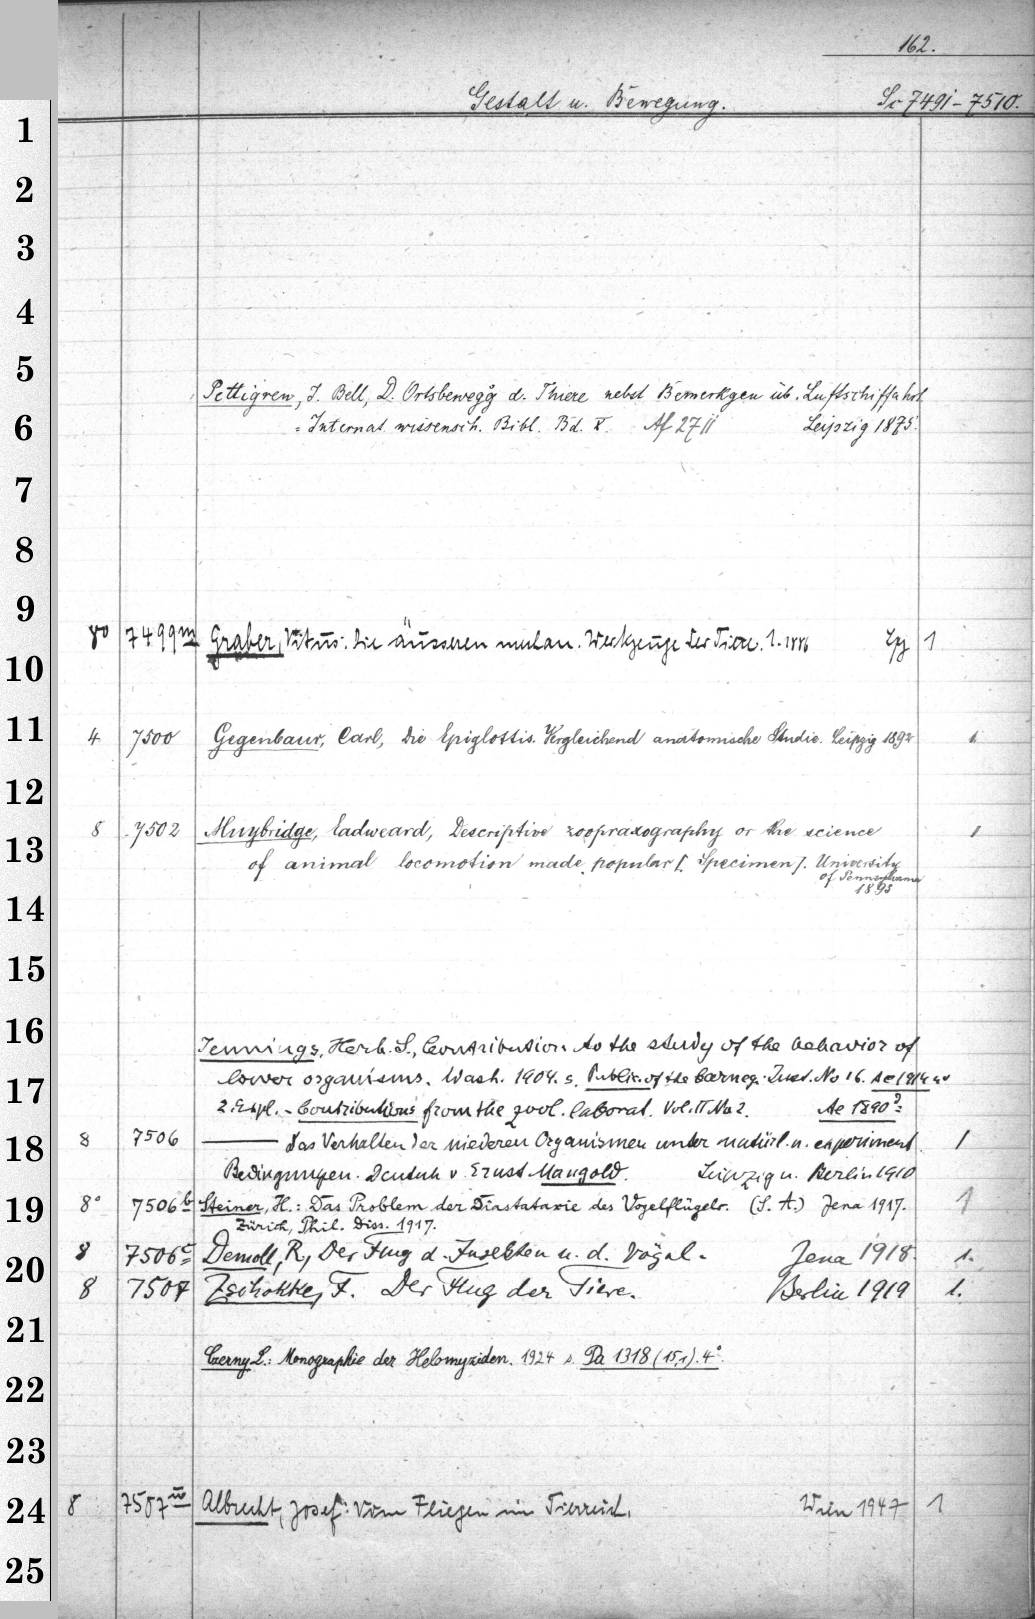 162.
Gestalt u. Bewegung. Sc 7491 - 7510.
1
2
3
4
5
Pettigrew, J. Bell, D. Ortsbewegg d. Thiere nebst Bemerkgen üb. Luftschiffahrt
6
= Internat. wissensch. Bibl. Bd. X. Af 27 ii Leipzig 1875.
7
8
9
8o 7499m Graber, Vitus: Die äusseren mechan. Werkzeuge der Tiere. 1. 1886 Lpz 1
10
11
4 7500 Gegenbaur, Carl, Die Epiglottis. Vergleichend anatomische Studie. Leipzig 1892 1
12
8 7502 Muybridge, Eadweard, Descriptive zoopraxography or the science 1
13
of animal locomotion made popular [Specimen]. University
of Pennsylvania
1893
14
15
16
Jennings, Herb. S., Contribution to the study of the behavior of
17
lower organisms. Wash. 1904. s. Public. of the Carneg. Inst. No 16. Ae 1914
2. Expl. - Contributions from the zool. laborat. Vol. II No 2. Ae 1890
18
8 7506 ——— Das Verhalten der niederen Organismen unter natürl. u. experiment. 1
Bedingungen. Deutsch v. Ernst Mangold. Leipzig u. Berlin 1910
19
8° 7506b Steiner, H.: Das Problem der Diastataxie des Vogelflügels. (S. A.) Jena 1917. 1
Zürich, Phil. Diss. 1917.
20
8 7506c Demoll, R, Der Flug d. Insekten u. d. Vögel. Jena 1918. 1.
8 7507 Zschokke, F. Der Flug der Tiere. Berlin 1919 1.
21
Czerny L.: Monographie der Helomyziden. 1924 s. Pa 1318 (15,1). 4°.
22
23
24
8 7507w Albrecht, Josef: Vom Fliegen im Tierreich. Wien 1947 1
25